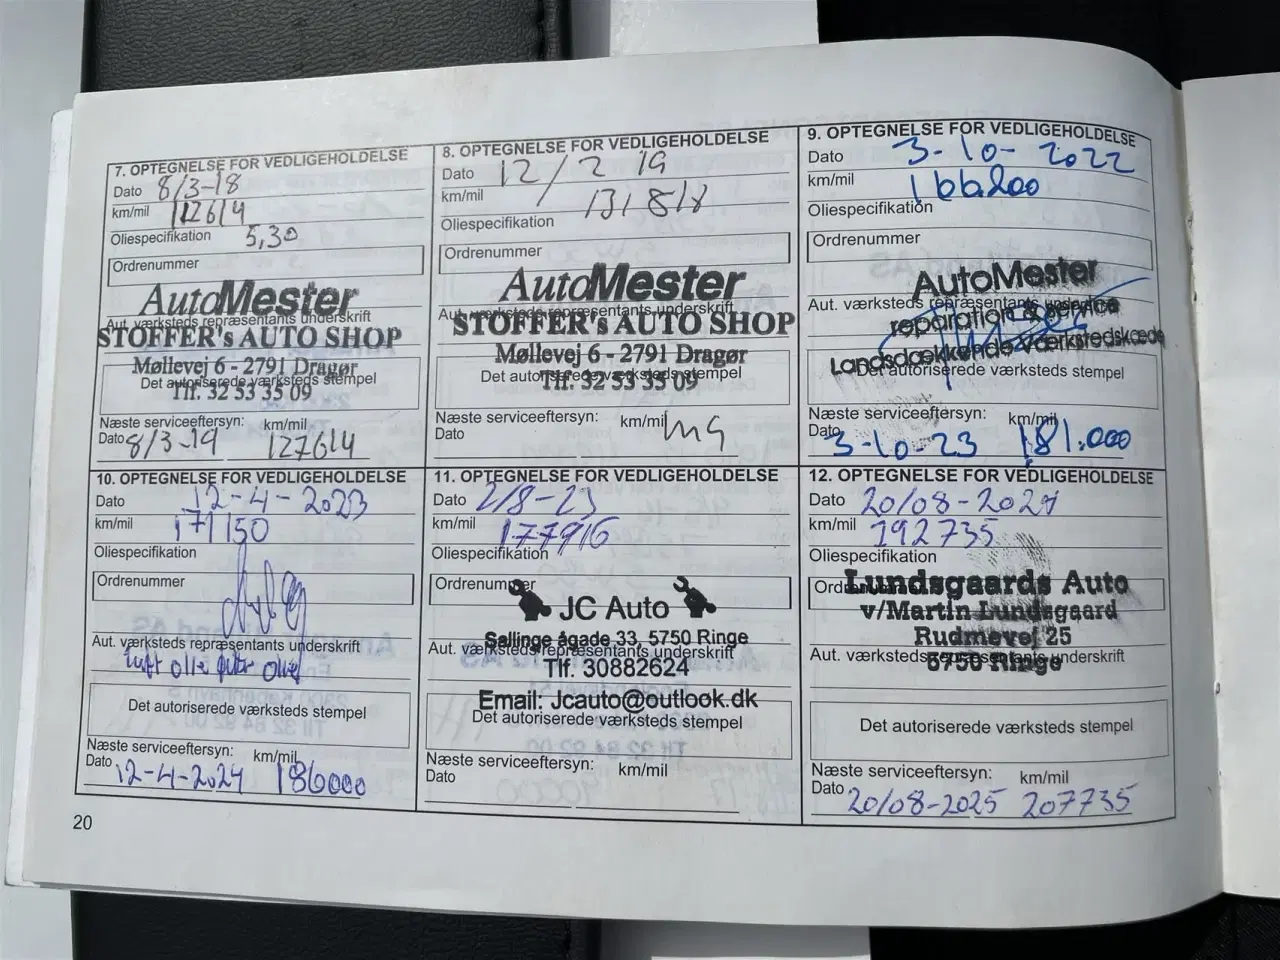 7. OPTEGNELSE FOR VEDLIGEHOLDELSE
Dato 8/3-18
km/mil 112614
Oliespecifikation 5,30
Ordrenummer
AutoMester
Aut. værksteds repræsentants underskrift
STOFFER's AUTO SHOP
Møllevej 6 - 2791 Dragør
Det autoriserede værksteds stempel
Tlf. 32 53 35 09
Næste serviceeftersyn: km/mil
Dato 8/3-19 127614
8. OPTEGNELSE FOR VEDLIGEHOLDELSE
Dato 12/2 19
km/mil 131818
Oliespecifikation
Ordrenummer
AutoMester
Aut. værksteds repræsentants underskrift
STOFFER's AUTO SHOP
Møllevej 6 - 2791 Dragør
Det autoriserede værksteds stempel
Tlf. 32 53 35 09
Næste serviceeftersyn: km/mil
Dato
9. OPTEGNELSE FOR VEDLIGEHOLDELSE
Dato 3-10-2022
km/mil 166200
Oliespecifikation
Ordrenummer
AutoMester
Aut. værksteds repræsentants underskrift
reparation & service
Landsdækkende værkstedskæde
Det autoriserede værksteds stempel
Næste serviceeftersyn: km/mil
Dato 3-10-23 181.000
10. OPTEGNELSE FOR VEDLIGEHOLDELSE
Dato 12-4-2023
km/mil 171150
Oliespecifikation
Ordrenummer
Aut. værksteds repræsentants underskrift
luft olie
Det autoriserede værksteds stempel
Næste serviceeftersyn: km/mil
Dato 12-4-2024 186000
11. OPTEGNELSE FOR VEDLIGEHOLDELSE
Dato 2/8-23
km/mil 177916
Oliespecifikation
Ordrenummer
JC Auto
Sallinge ågade 33, 5750 Ringe
Aut. værksteds repræsentants underskrift
Tlf. 30882624
Email: Jcauto@outlook.dk
Det autoriserede værksteds stempel
Næste serviceeftersyn: km/mil
Dato
12. OPTEGNELSE FOR VEDLIGEHOLDELSE
Dato 20/08-2024
km/mil 192735
Oliespecifikation
Ordrenummer
Lundsgaards Auto
v/Martin Lundsgaard
Rudmevej 25
Aut. værksteds repræsentants underskrift
5750 Ringe
Det autoriserede værksteds stempel
Næste serviceeftersyn: km/mil
Dato 20/08-2025 207735
20